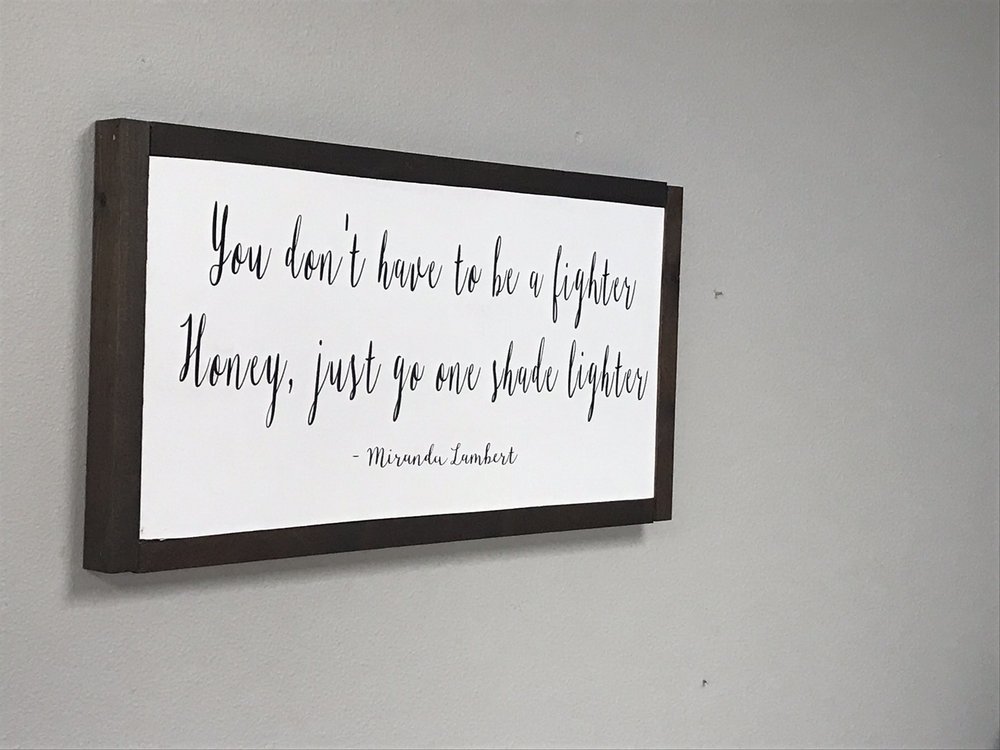 You don't have to be a fighter
Honey, just go one shade lighter
- Miranda Lambert